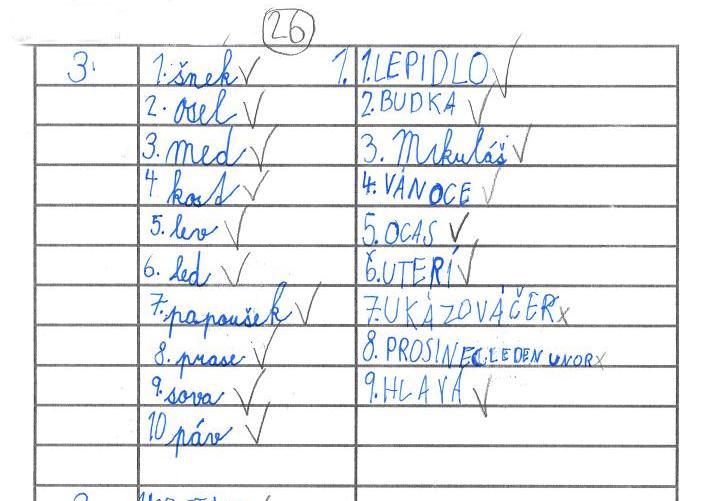 26
3. 1. šnek 1. 1. LEPIDLO
2. osel 2. BUDKA
3. med 3. Mikuláš
4 kost 4. VÁNOCE
5. lev 5. OCAS
6. led 6. ÚTERÍ
7. papoušek 7. UKÁZOVÁČER
8. prase 8. PROSINEC LEDEN UNOR
9. sova 9. HLAVA
10 páv